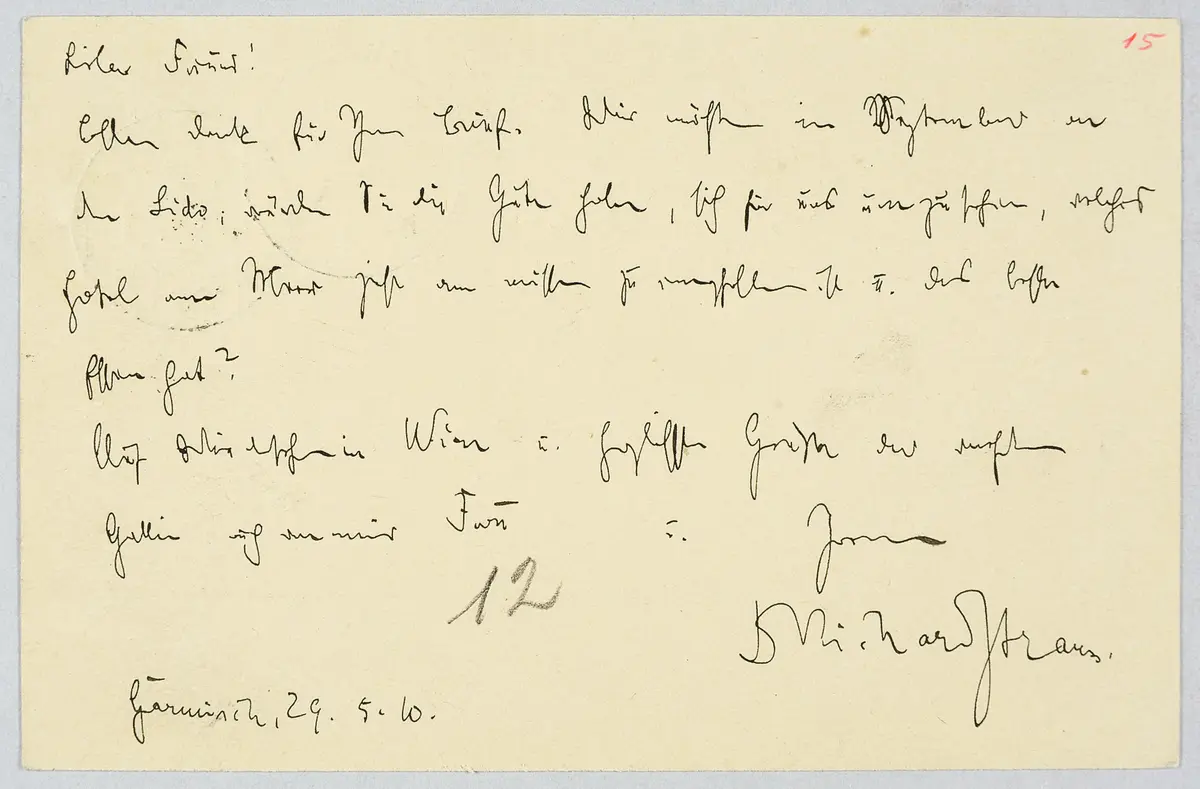 15
Lieber Freund!
Besten Dank für Ihren Brief. Wir möchten im September an
den Lido, würden Sie die Güte haben, sich für uns umzusehen, welches
Hotel am Meer jetzt am meisten zu empfehlen ist u. das beste
Essen hat?
Auf Wiedersehen in Wien u. herzlichste Grüße der verehrten
Gattin auch von mir Frau u. Ihrem
12
D Richard Strauss.
Garmisch, 29. 5. 10.